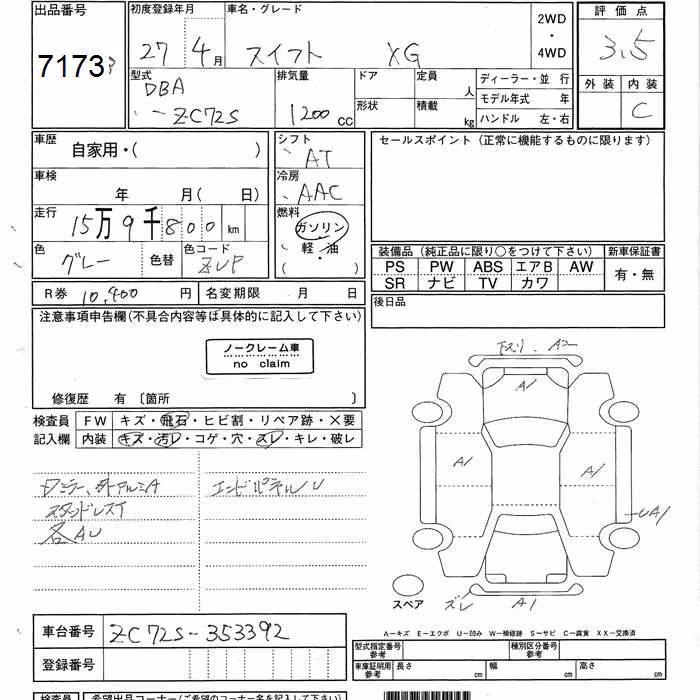 出品番号 初度登録年月 車名・グレード 2WD ・ 4WD 評価点
7173 27年4月 スイフト XG 3.5
型式 DBA-ZC72S 排気量 1200cc ドア 定員 人 ディーラー・並行 外装 内装
形状 積載 kg モデル年式 年 C
ハンドル 左・右
車歴 自家用・( ) シフト AT セールスポイント(正常に機能するものに限ります)
車検 年 月( 日) 冷房 AAC
走行 15万9千800km 燃料 ガソリン 軽・油 ( )
色 グレー 色替 色コード ZUP
装備品(純正品に限り○をつけて下さい) 新車保証書
PS PW ABS エアB AW 有・無
SR ナビ TV カワ
R券 10,400円 名変期限 月 日 後日品
注意事項申告欄(不具合内容等は具体的に記入して下さい)
ノークレーム車
no claim
修復歴 有〔箇所 〕
検査員 FW キズ・飛石・ヒビ割・リペア跡・×要
記入欄 内装 キズ・汚レ・コゲ・穴・スレ・キレ・破レ
下スリ. A2
A1
A1 A1
UA1
スペア ズレ A1
スタンドレスT エンドパネルU
各AU
A-キズ E-エクボ U-凹み W-補修跡 S-サビ C-腐食 XX-交換済
車台番号 ZC72S-353392
登録番号
型式指定番号 参考 種別区分番号 参考
車庫証明用 参考 長さ cm 幅 cm 高さ cm
検査員 希望出品コーナー(ご希望のコーナー名を記入して下さい)